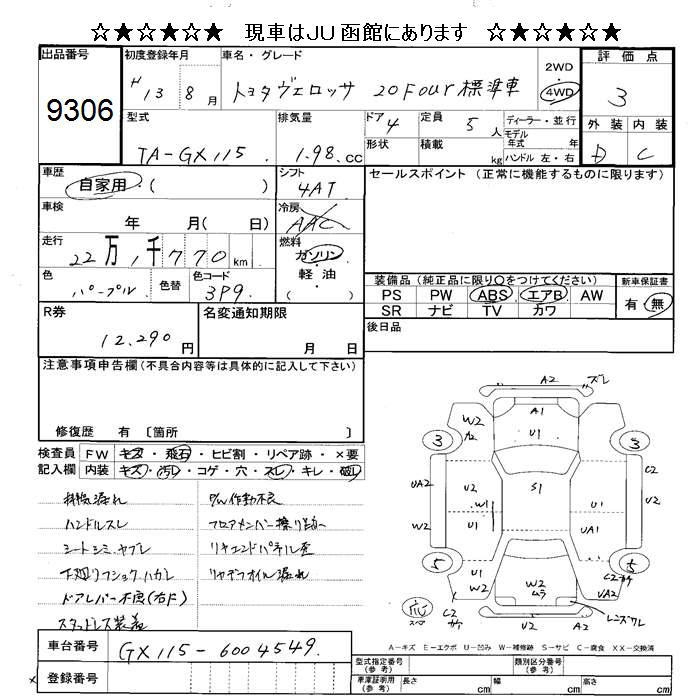 ☆★☆★☆★ 現車はJU函館にあります ☆★☆★☆★
出品番号 9306
初度登録年月 H13 8月
車名・グレード トヨタヴェロッサ 20Four標準車
2WD
4WD
評価点 3
外装 内装
D C
型式 TA-GX115
排気量 1.98 CC
ドア 4
定員 5人
形状 積載 kg
ディーラー・並行
モデル年式 年
ハンドル左・右
車歴 自家用・( )
シフト 4AT
セールスポイント(正常に機能するものに限ります)
車検 年 月( 日)
冷房 AAC
走行 22万,1千770km
燃料 ガソリン・軽油・( )
色 パープル 色替 色コード 3P9
装備品(純正品に限り○をつけてください)
PS PW ABS エアB AW
SR ナビ TV カワ
新車保証書 有・無
R券 12,290円
名変通知期限 月 日
後日品
注意事項申告欄(不具合内容等は具体的に記入して下さい)
修復歴 有〔箇所
検査員記入欄
FW キズ・飛石・ヒビ割・リペア跡・×要
内装 キズ・汚レ・コゲ・穴・スレ・キレ・破レ
ハンドルスレ
シートシミ,ヤブレ
ドアレバー不良(右F)
スタッドレス装着
P/W作動不良
リヤデフオイル漏れ
A2 ズレ
A1
U1
W2
A2
3
3
C2
UA2
U2
W1
S1
U1
U2
W2
U1
UA1
5
5
U1
W2
W2
ムラ
UA2
C2
レンズワレ
U2
A2
応
スペア
車台番号 GX115-6004549
A-キズ E-エクボ U-凹み W-補修跡 S-サビ C-腐食 XX-交換済
× 登録番号
型式指定番号(参考) 類別区分番号(参考)
車庫証明用(参考) 長さ cm 幅 cm 高さ cm